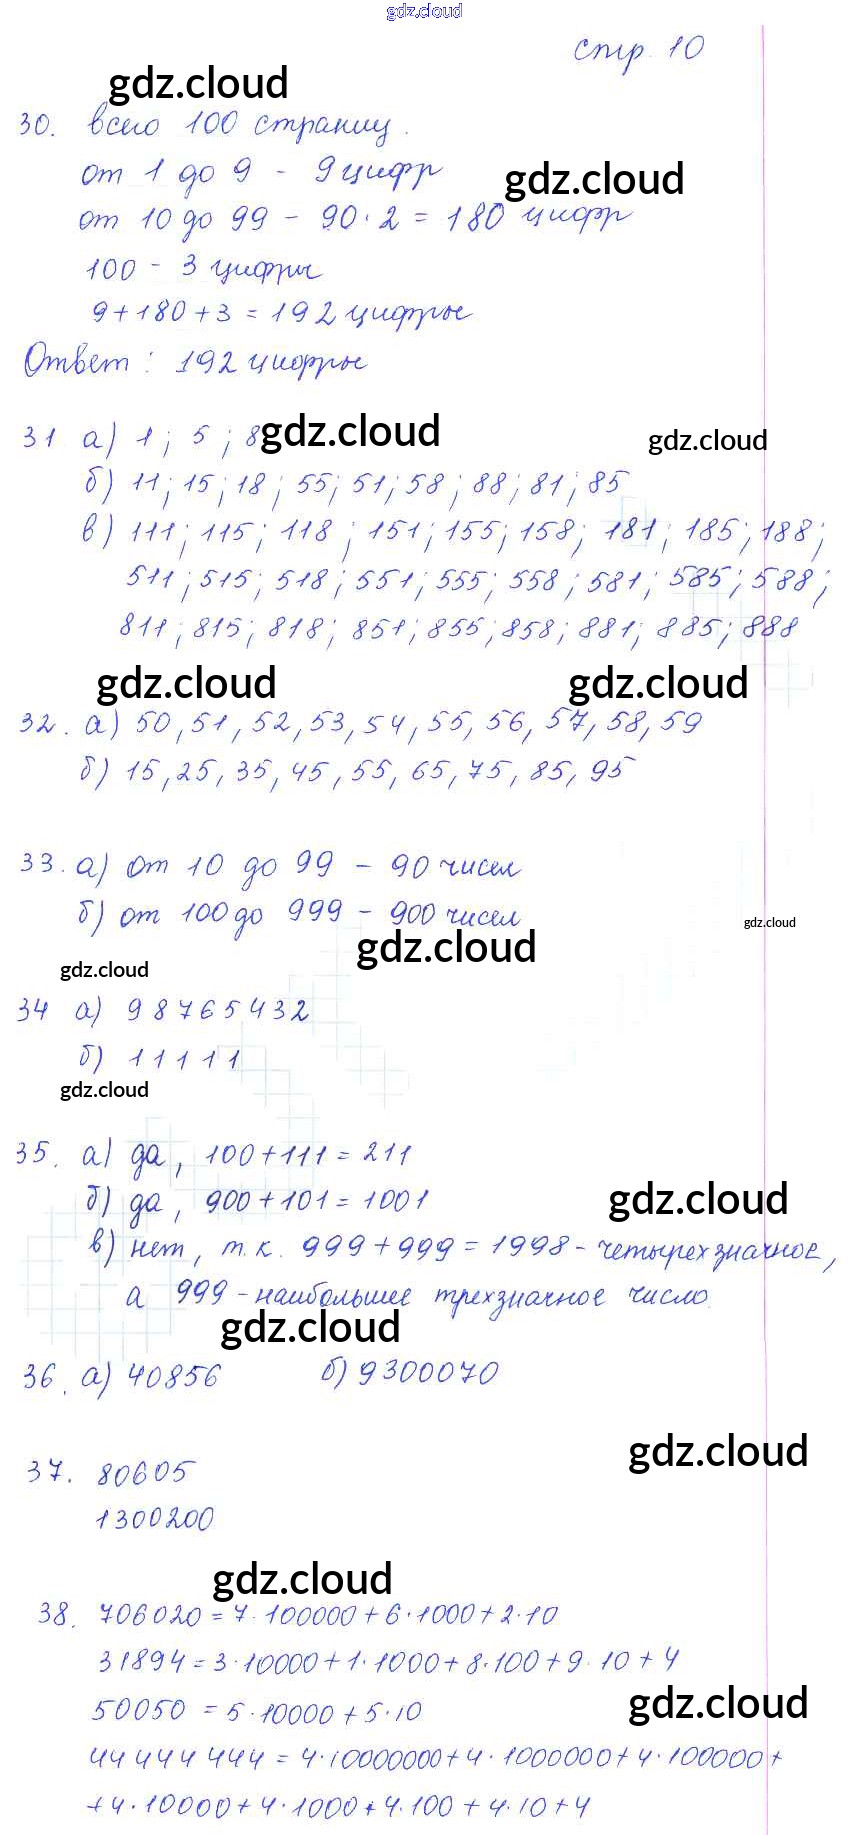 gdz.cloud
стр. 10
gdz.cloud
30. всего 100 страниц.
от 1 до 9 - 9 цифр
gdz.cloud
от 10 до 99 - 90·2 = 180 цифр
100 - 3 цифры
9+180+3 = 192 цифры
Ответ: 192 цифры
31 а) 1; 5; 8
gdz.cloud
gdz.cloud
б) 11; 15; 18; 55; 51; 58; 88; 81; 85
в) 111; 115; 118; 151; 155; 158; 181; 185; 188;
511; 515; 518; 551; 555; 558; 581; 585; 588;
811; 815; 818; 851; 855; 858; 881; 885; 888
gdz.cloud
gdz.cloud
32. а) 50, 51, 52, 53, 54, 55, 56, 57, 58, 59
б) 15, 25, 35, 45, 55, 65, 75, 85, 95
33. а) от 10 до 99 - 90 чисел
б) от 100 до 999 - 900 чисел
gdz.cloud
gdz.cloud
gdz.cloud
34 а) 98765432
б) 11111
gdz.cloud
35. а) да, 100+111=211
б) да, 900+101=1001
gdz.cloud
в) нет, т.к. 999+999=1998 - четырехзначное,
а 999 - наибольшее трехзначное число.
gdz.cloud
36. а) 40856 б) 9300070
gdz.cloud
37. 80605
1300200
gdz.cloud
38. 706020 = 7·100000+6·1000+2·10
31894 = 3·10000+1·1000+8·100+9·10+4
50050 = 5·10000+5·10
gdz.cloud
44 444 444 = 4·10000000+4·1000000+4·100000+
+4·10000+4·1000+4·100+4·10+4